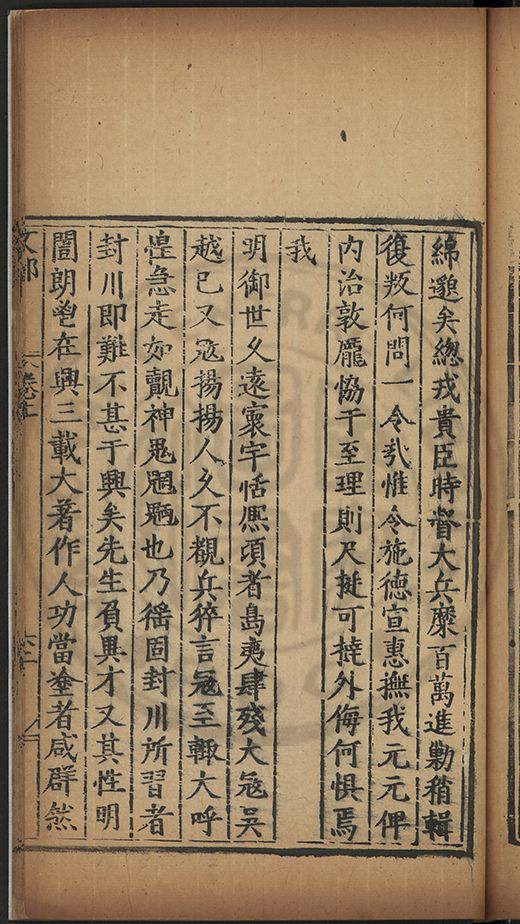 綿邈矣總戎貴臣時督大兵糜百萬進勦稍輯
復叛何問一令㢤惟令施德宣惠撫我元元俾
内治敦龎恊于至理則尺挺可撓外侮何惧焉
我
明御世久遠寰宇恬熈頃者島夷肆殘大冦吳
越已又冦揚揚人久不覩兵猝言冦至輙大呼
惶急走如覩神鬼魍魎也乃徭固封川所習者
封川即難不甚于興矣先生負異才又其性明
誾朗鬯在興三載大著作人功當塗者咸群然
文部